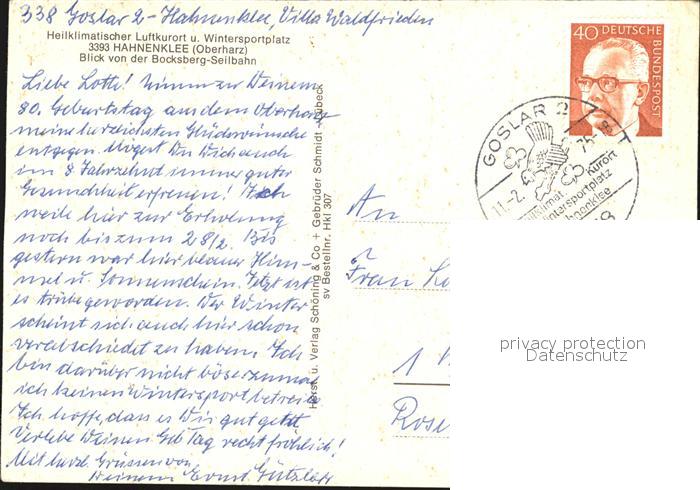 338 Goslar 2-Hahnenklee, Villa Waldfrieden
Heilklimatischer Luftkurort u. Wintersportplatz
3393 HAHNENKLEE (Oberharz)
Blick von der Bocksberg-Seilbahn
Liebe Lotti! Nimm zu Deinem
80. Geburtstag aus dem Oberharz
meine herzlichsten Glückwünsche
entgegen. Mögest Du Dich auch
im 8. Jahrzehnt immer guter
Gesundheit erfreuen! Ich
weile hier zur Erholung
noch bis zum 28/2. Bis
gestern war hier blauer Him-
mel u. Sonnenschein. Jetzt ist
es trübe geworden. Der Winter
scheint sich auch hier schon
verabschiedet zu haben. Ich
bin darüber nicht böse, zumal
ich keinen Wintersport betreibe
Ich hoffe, dass es Dir gut geht.
Verlebe Deinen Geb Tag recht fröhlich!
Mit herzl. Grüssen von
Deinem Ernst
Horst u. Verlag Schöning & Co + Gebrüder Schmidt - Lübeck
sv Bestellnr. Hkl 307
40 DEUTSCHE
BUNDESPOST
GOSLAR 2
11.-2.
Kurort
Wintersportplatz
Hahnenklee
An
Frau
1
Rose
privacy protection
Datenschutz